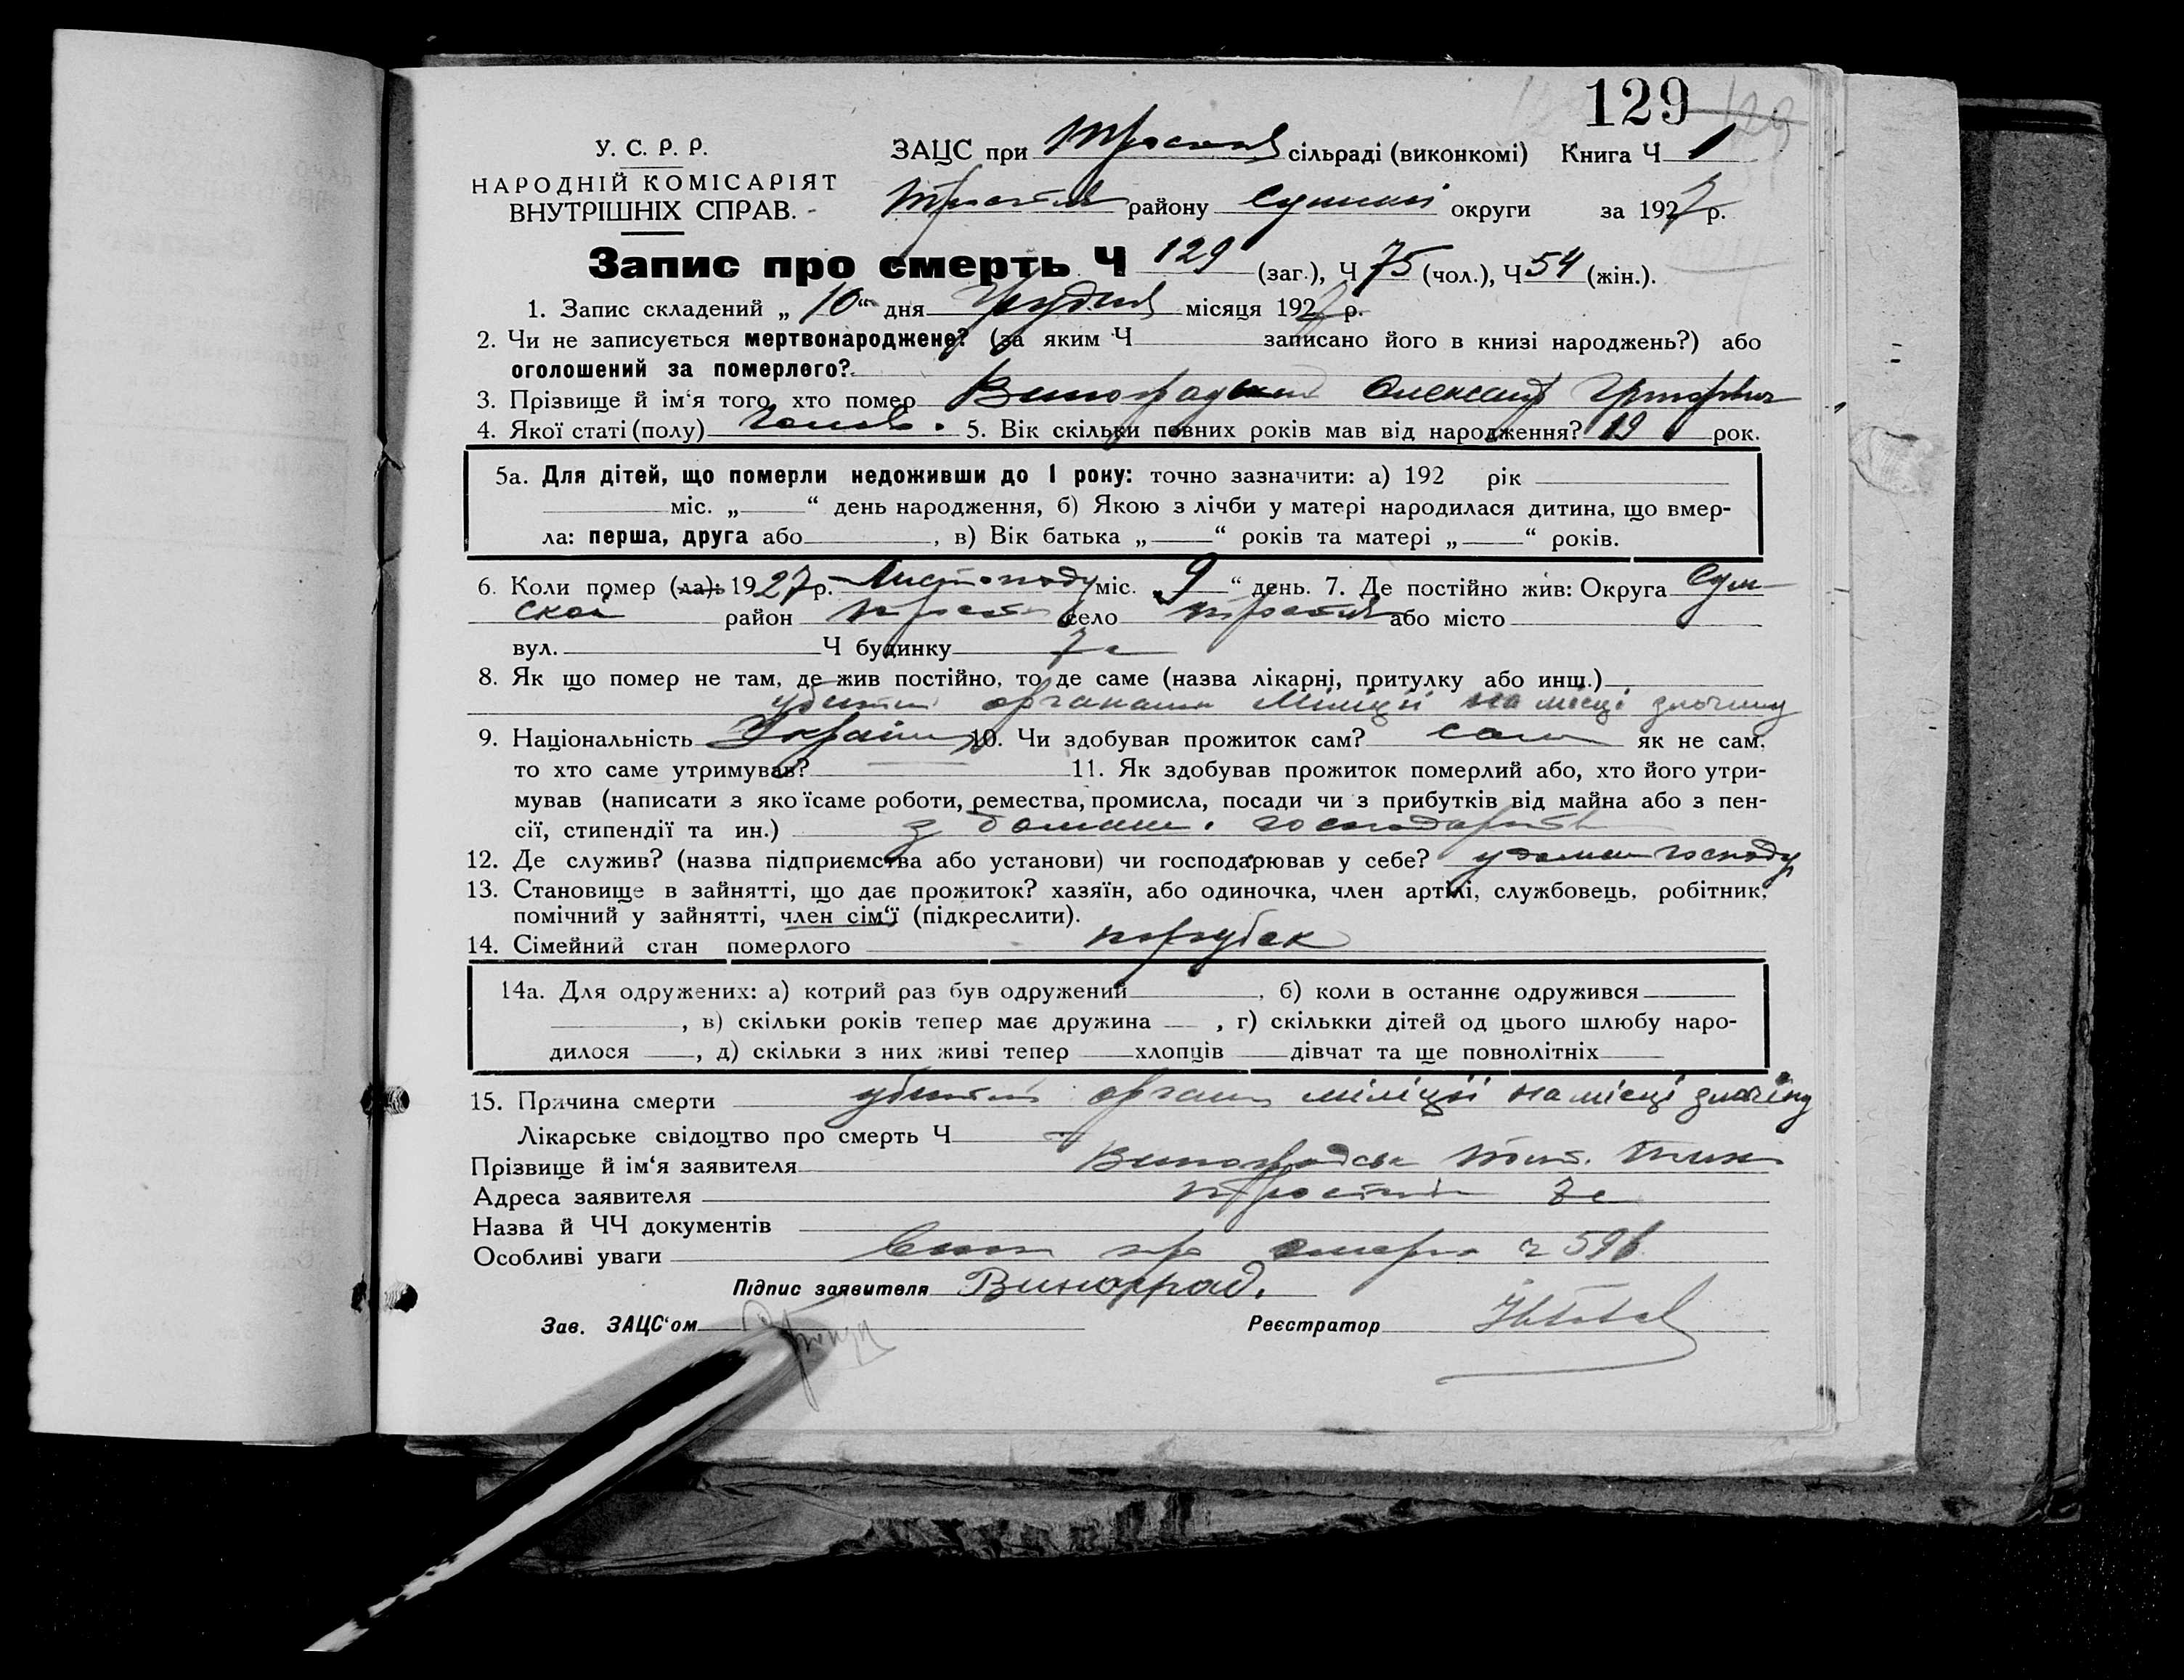 129 129
У. С. Р. Р.
НАРОДНІЙ КОМІСАРІЯТ
ВНУТРІШНІХ СПРАВ.
ЗАЦС при Тростян сільраді (виконкомі) Книга Ч 1
Тростян району Сумської округи за 1927 р.
Запис про смерть Ч 129 (заг.), Ч 75 (чол.), Ч 54 (жін.).
1. Запис складений „ 10 “ дня Грудня місяця 1927 р.
2. Чи не записується мертвонароджене? (за яким Ч записано його в книзі народжень?) або
оголошений за померлого?
3. Прізвище й ім‘я того, хто помер Виноградський Олександр Григорович
4. Якої статі (полу) чолов. 5. Вік скільки повних років мав від народження? 19 рок.
5а. Для дітей, що померли недоживши до 1 року: точно зазначити: а) 192 рік
міс. „ “ день народження, б) Якою з лічби у матері народилася дитина, що вмер-
ла: перша, друга або , в) Вік батька „ “ років та матері „ “ років.
6. Коли помер (ла): 1927 р. Листопаду міс. 9 “ день. 7. Де постійно жив: Округа Сум-
ской район Трост село Тростян або місто
вул. Ч будинку
8. Як що помер не там, де жив постійно, то де саме (назва лікарні, притулку або инш.)
убитий органами Міліції на місці злочину
9. Національність Україн 10. Чи здобував прожиток сам? сам як не сам,
то хто саме утримував? 11. Як здобував прожиток померлий або, хто його утри-
мував (написати з якоїсаме роботи, ремества, промисла, посади чи з прибутків від майна або з пен-
сії, стипендії та ин.) з домаш. господарств
12. Де служив? (назва підприємства або установи) чи господарював у себе? у домаш господ
13. Становище в зайнятті, що дає прожиток? хазяїн, або одиночка, член артілі, службовець, робітник,
помічний у зайнятті, член сім‘ї (підкреслити).
14. Сімейний стан померлого парубок
14а. Для одружених: а) котрий раз був одружений , б) коли в останнє одружився
, в) скільки років тепер має дружина , г) скількки дітей од цього шлюбу наро-
дилося , д) скільки з них живі тепер хлопців дівчат та ще повнолітніх
15. Причина смерти убитий орган міліції на місці злочину
Лікарське свідоцтво про смерть Ч
Прізвище й ім‘я заявителя Виноградськ
Адреса заявителя Тростян
Назва й ЧЧ документів
Особливі уваги про смерть ч 596
Підпис заявителя Виноград.
Зав. ЗАЦС‘ом
Реєстратор